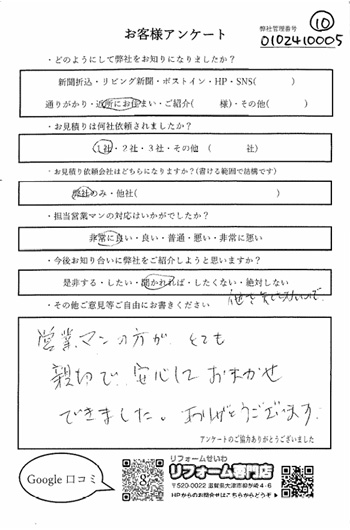 お客様アンケート
弊社管理番号
⑩
0102410005
・どのようにして弊社をお知りになりましたか？
新聞折込・リビング新聞・ポストイン・HP・SNS(　　　)
通りがかり・近所にお住まい・ご紹介(　　　様)・その他(　　　)
・お見積りは何社依頼されましたか？
1社・2社・3社・その他 (　　　社)
・お見積り依頼会社はどちらになりますか？(書ける範囲で結構です)
弊社のみ・他社(　　　)
・担当営業マンの対応はいかがでしたか？
非常に良い・良い・普通・悪い・非常に悪い
・今後お知り合いに弊社をご紹介しようと思いますか？
是非する・したい・聞かれれば・したくない・絶対しない
・その他ご意見等ご自由にお書きください
営業マンの方が とても
親切で 安心して おまかせ
できました。ありがとうございます.
アンケートのご協力ありがとうございました
Google 口コミ
リフォームせいわ
リフォーム専門店
〒520-0022 滋賀県大津市柳が崎4-6
HPからのお問合せはこちらからどうぞ